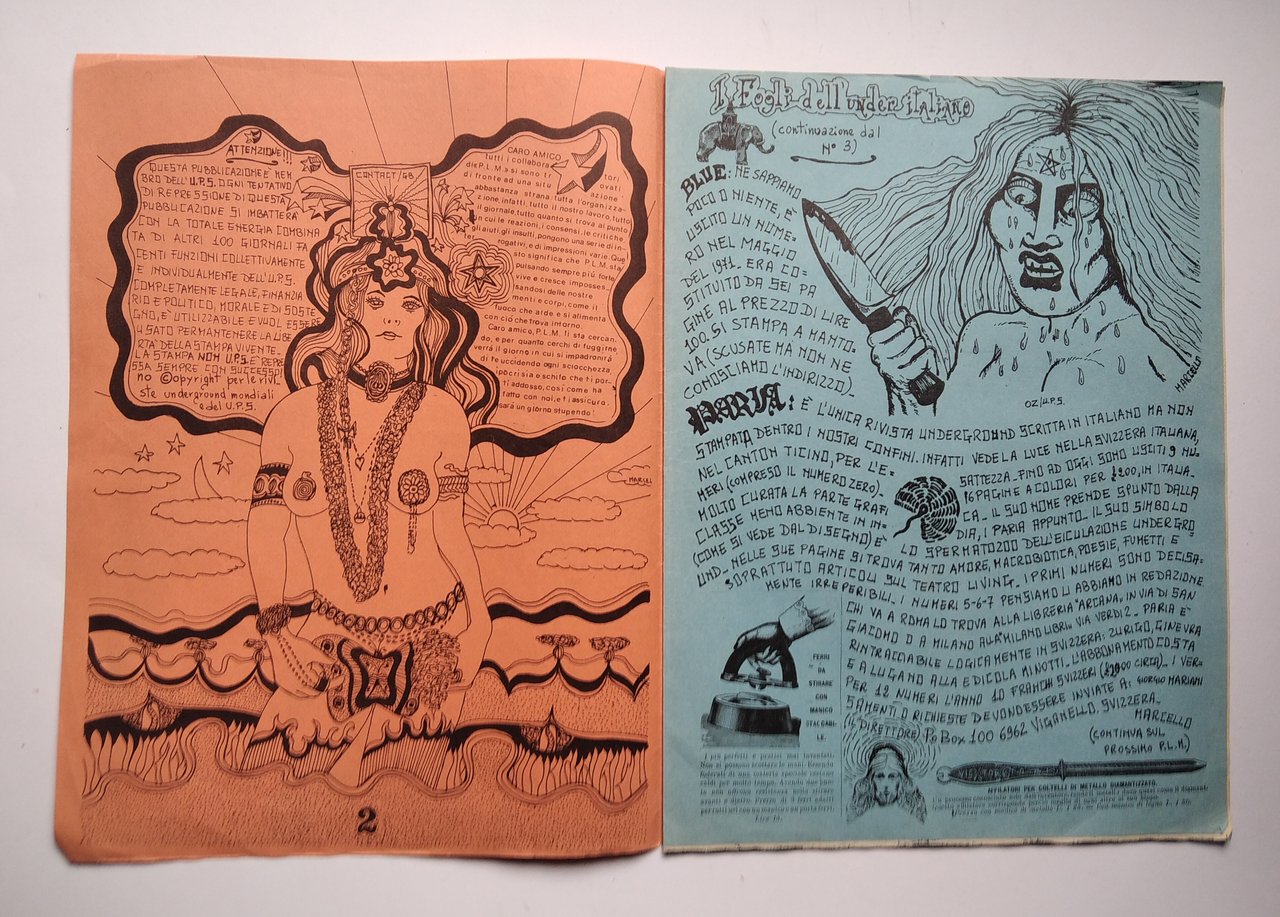 ATTENZIONE!!!
QUESTA PUBBLICAZIONE E' MEM
BRO DELL'U.P.S. OGNI TENTATIVO
DI REPRESSIONE DI QUESTA
PUBBLICAZIONE SI IMBATTERÀ
CON LA TOTALE ENERGIA COMBINA
TA DI ALTRI 100 GIORNALI FA
CENTI FUNZIONI COLLETTIVAMENTE
E INDIVIDUALMENTE DELL'U.P.S.
COMPLETAMENTE LEGALE, FINANZIA
RIO E POLITICO, MORALE E DI SOSTE
GNO, E' UTILIZZABILE E VUOL ESSERE
USATO PER MANTENERE LA LIBE
RTA' DELLA STAMPA VIVENTE.
LA STAMPA NON U.P.S. E' REPRE
SSA SEMPRE CON SUCCESSO
no ©opyright per le rivi
ste underground mondiali
e del U.P.S.
CONTACT/GB
CARO AMICO
tutti i collabora tori
di P.L.M. si sono t ovati
di fronte ad una situ azione
abbastanza strana tutta l'organiz
zione, infatti, tutto il nostro lavoro, tutto
il giornale, tutto quanto si trova al punto
in cui le reazioni, i consensi, le critiche,
gli aiuti, gli insulti, pongono una serie di in
ter rogativi, e di impressioni varie. Que
sto significa che P.L.M. sta
pulsando sempre più forte,
vive e cresce imposses
sandosi delle nostre
menti e corpi, come il
fuoco che arde e si alimenta
con ciò che trova intorno.
Caro amico, P.L.M. ti sta cercan
do, e per quanto cerchi di fuggirne,
verrà il giorno in cui si impadronirà
di te uccidendo ogni sciocchezza,
ipocrisia e schifo che ti por
ti addosso, così come ha
fatto con noi, e ti assicuro,
sarà un giorno stupendo!
MARCEL
2
I Fogli dell'under italiano
(continuazione dal
N° 3)
BLUE: NE SAPPIAMO
POCO O NIENTE, È
USCITO UN NUME-
RO NEL MAGGIO
DEL 1971_ ERA CO-
STITUITO DA SEI PA
GINE AL PREZZO DI LIRE
100. SI STAMPA A MANTO-
VA (SCUSATE MA NON NE
CONOSCIAMO L'INDIRIZZO)_
MARCELLO
OZ/U.P.S.
PARIA: È L'UNICA RIVISTA UNDERGROUND SCRITTA IN ITALIANO MA NON
STAMPATA DENTRO I NOSTRI CONFINI. INFATTI VEDE LA LUCE NELLA SVIZZERA ITALIANA,
NEL CANTON TICINO, PER L'E- SATTEZZA_ FINO AD OGGI SONO USCITI 9 NU-
MERI (COMPRESO IL NUMERO ZERO)_ 16 PAGINE A COLORI PER £200, IN ITALIA_
MOLTO CURATA LA PARTE GRAFI CA_ IL SUO NOME PRENDE SPUNTO DALLA
CLASSE MENO ABBIENTE IN IN- DIA, I PARIA APPUNTO. IL SUO SIMBOLO
(COME SI VEDE DAL DISEGNO) E' LO SPERMATOZOO DELL'EICULAZIONE UNDERGRO
UND_ NELLE SUE PAGINE SI TROVA TANTO AMORE, MACROBIOTICA, POESIE, FUMETTI E
SOPRATTUTO ARTICOLI SUL TEATRO LIVING_ I PRIMI NUMERI SONO DECISA-
MENTE IRREPERIBILI_ I NUMERI 5-6-7 PENSIAMO LI ABBIAMO IN REDAZIONE
CHI VA A ROMA LO TROVA ALLA LIBRERIA "ARCANA" IN VIA DI SAN
GIACOMO O A MILANO ALLA "MILANO LIBRI" VIA VERDI 2_ PARIA E'
RINTRACCIABILE LOGICAMENTE IN SVIZZERA: ZURIGO, GINEVRA
E A LUGANO ALLA EDICOLA MINOTTI. L'ABBONAMENTO COSTA
PER 12 NUMERI L'ANNO 10 FRANCHI SVIZZERI CIRCA)_ I VER-
SAMENTI O RICHIESTE DEVONO ESSERE INVIATE A: GIORGIO MARIANI
(IL DIRETTORE) PO BOX 100 6962 VIGANELLO. SVIZZERA_
MARCELLO
(CONTINUA SUL
PROSSIMO P.L.M.)
FERRI
DA
STIRARE
CON
MANICO
STACCABI-
LE.
I più perfetti e pratici mai inventati.
Lire 10.
AFFILATORI PER COLTELLI DI METALLO DIAMANTIZZATO.